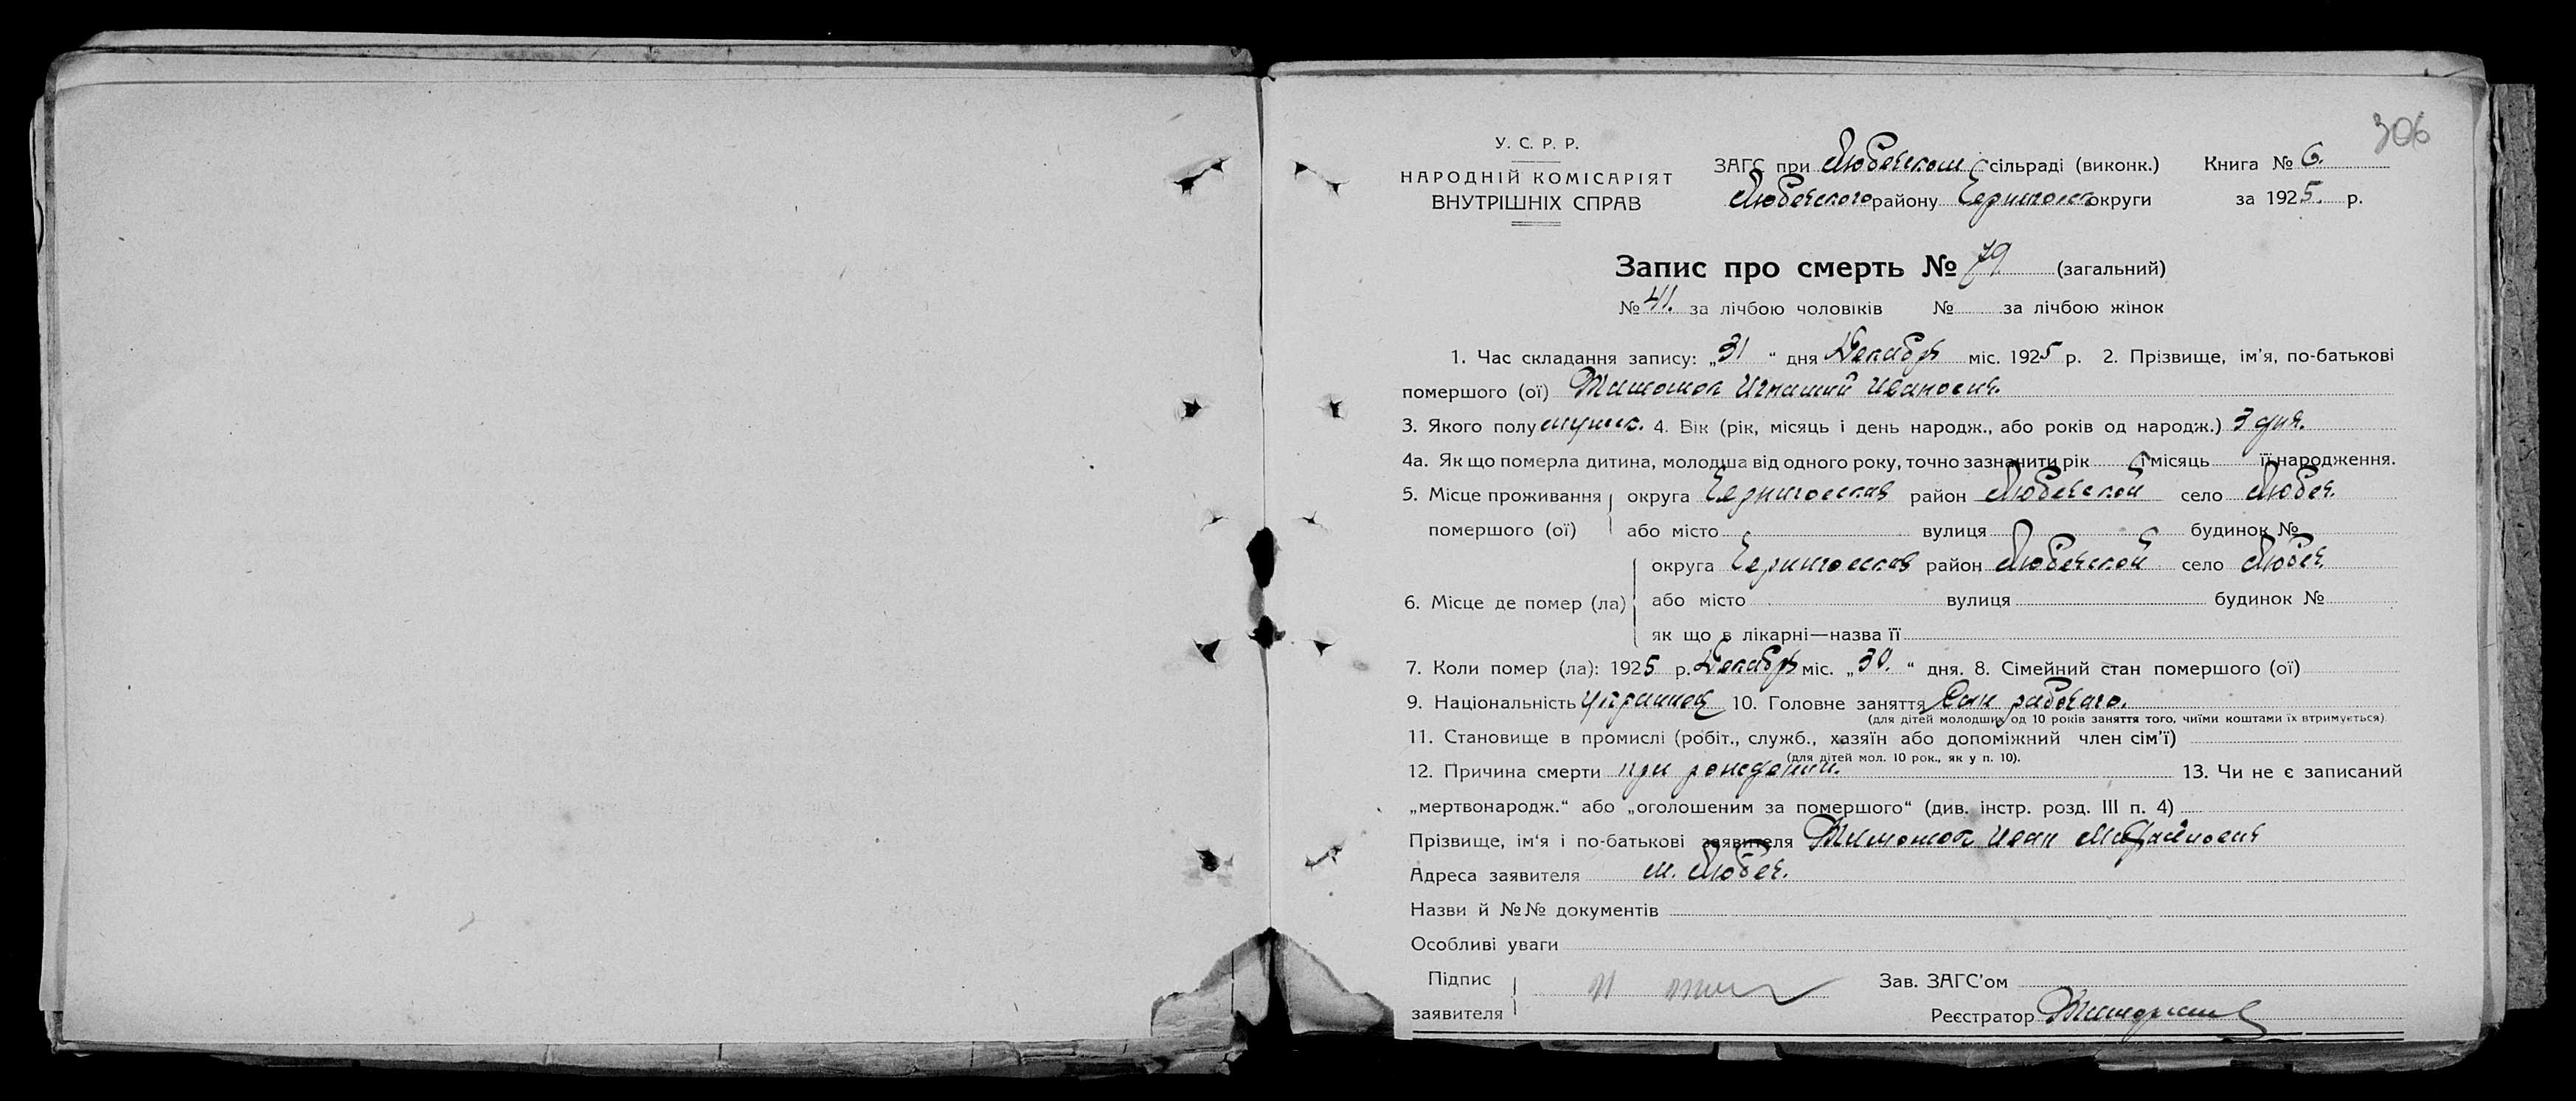 306
У. С. Р. Р.
НАРОДНІЙ КОМІСАРІЯТ
ВНУТРІШНІХ СПРАВ
ЗАГС при Любечском сільраді (виконк.) Книга № 6.
Любечского району Черниговск округи за 1925. р.
Запис про смерть № 79 (загальний)
№ 41. за лічбою чоловіків № за лічбою жінок
1. Час складання запису: „31 “ дня Декабря міс. 1925 р. 2. Прізвище, ім'я, по-батькові
помершого (ої) Тимошок Игнатий Иванович.
3. Якого полу мужск. 4. Вік (рік, місяць і день народж., або років од народж.) 3 дня.
4а. Як що померла дитина, молодша від одного року, точно зазначити рік і місяць її народження.
5. Місце проживання округа Черниговская район Любечской село Любеч.
помершого (ої) або місто вулиця будинок №
округа Черниговская район Любечской село Любеч
6. Місце де помер (ла) або місто вулиця будинок №
як що в лікарні—назва її
7. Коли помер (ла): 1925 р. Декабря міс. „30. “ дня. 8. Сімейний стан помершого (ої)
9. Національність Украинец 10. Головне заняття Сын рабочаго.
(для дітей молодших од 10 років заняття того, чиїми коштами їх втримується)
11. Становище в промислі (робіт., служб., хазяїн або допоміжний член сім'ї)
(для дітей мол. 10 рок., як у п. 10).
12. Причина смерти при рождении. 13. Чи не є записаний
„мертвонародж.“ або „оголошеним за помершого“ (див. інстр. розд. III п. 4)
Прізвище, ім'я і по-батькові заявителя Тимошок Иван Михайлович
Адреса заявителя м. Любеч.
Назви й №№ документів
Особливі уваги
Підпис
заявителя
Зав. ЗАГС'ом
Реєстратор